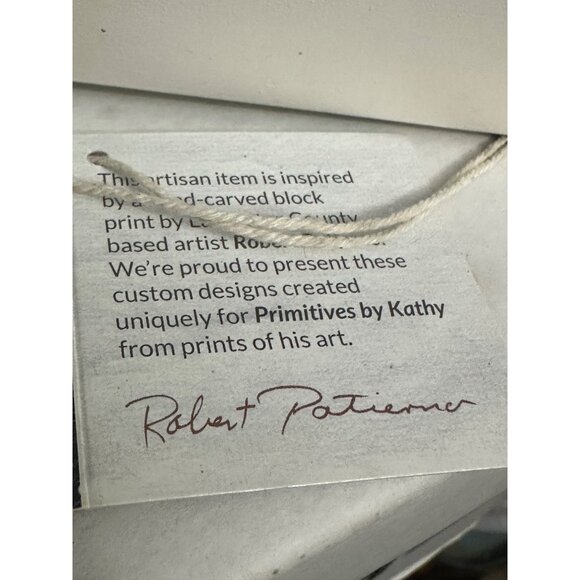 This artisan item is inspired
by a hand-carved block
print by County
based artist
We're proud to present these
custom designs created
uniquely for Primitives by Kathy
from prints of his art.
Robert Patierno